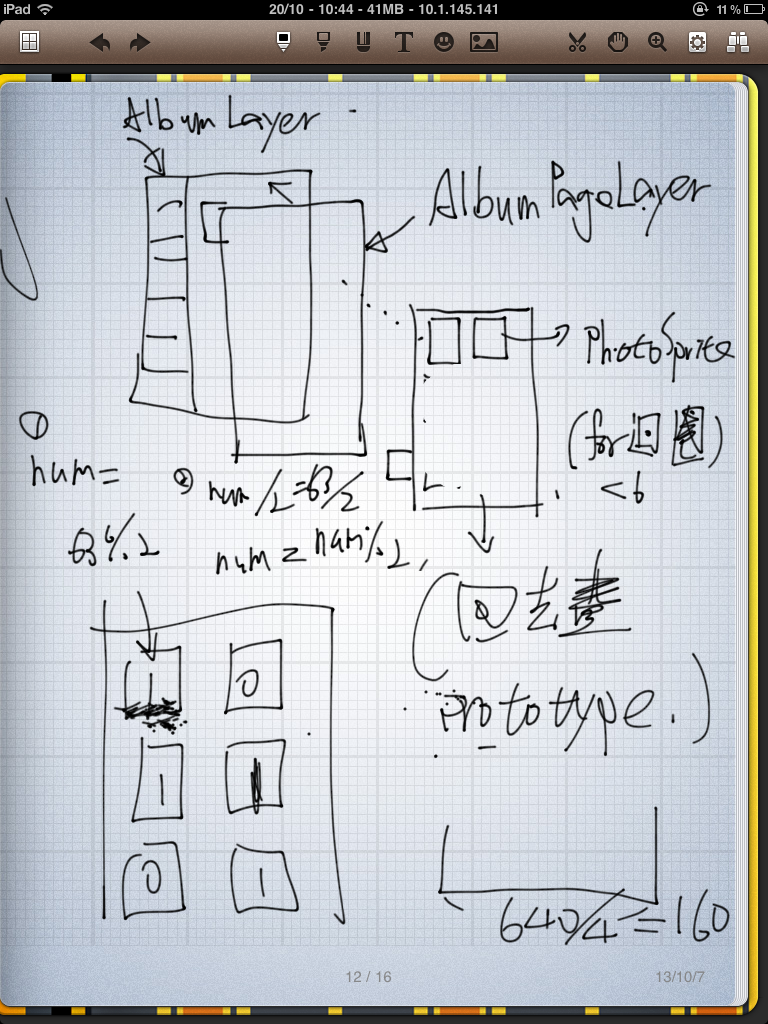 iPad
20/10 - 10:44 - 41MB - 10.1.145.141
11 %
T
AlbumLayer
AlbumPageLayer
PhotoSprite
(for回圈)
<6
①
num =
63 % 2
② num/2=63/2
num = num%2,
(回去畫
prototype.)
1 0
1 1
0 1
640/4=160
12 / 16
13/10/7